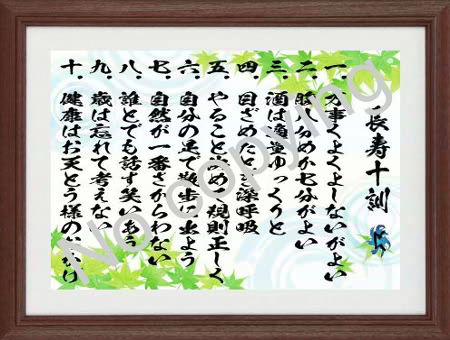 長寿十訓
一、万事くよくよしないがよい
二、腹八分めか七分がよい
三、酒は適量ゆっくりと
四、目ざめたとき深呼吸
五、やること決めて規則正しく
六、自分の足で散歩に出よう
七、自然が一番さからわない
八、誰とでも話す笑いあう
九、歳は忘れて考えない
十、健康はお天とう様のおかげ
No copying